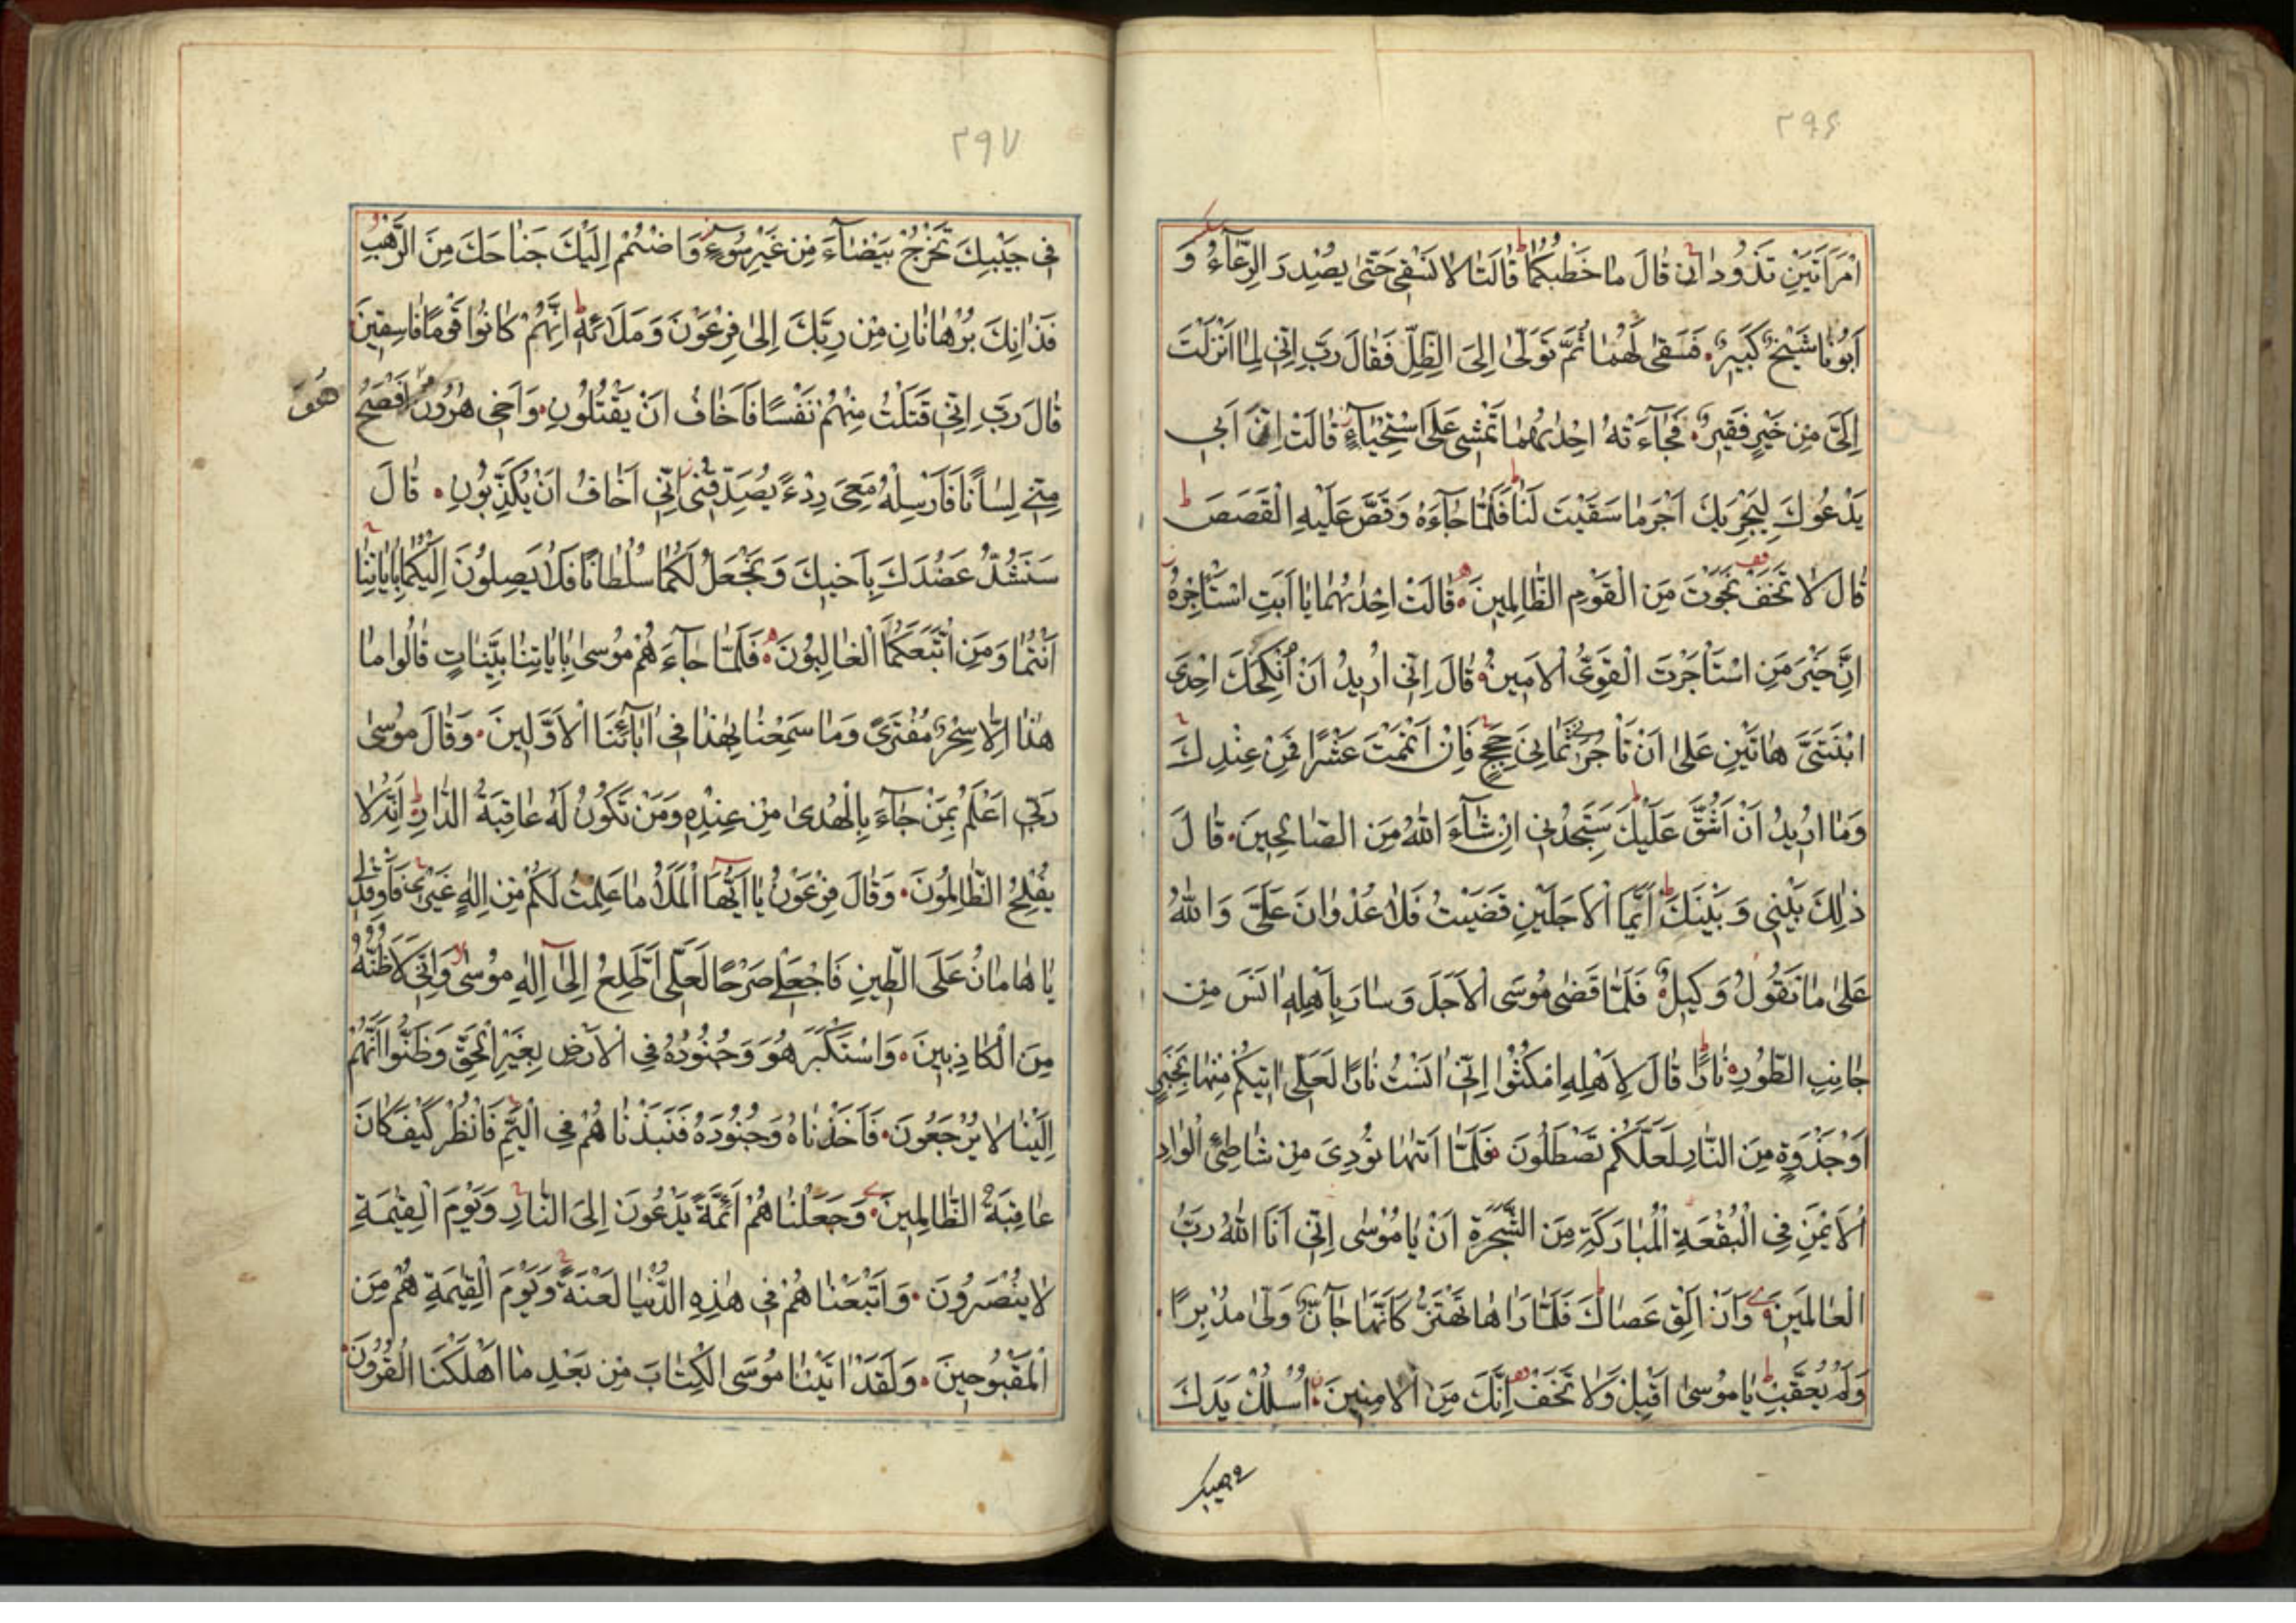 ۲۹۶
امْرَاَتَيْنِ تَذُودَانِ قَالَ مَا خَطْبُكُمَا قَالَتَا لَا نَسْقِى حَتّٰى يُصْدِرَ الرِّعَآءُ وَ
اَبُونَا شَيْخٌ كَبِيرٌ فَسَقٰى لَهُمَا ثُمَّ تَوَلّٰى اِلَى الظِّلِّ فَقَالَ رَبِّ اِنِّى لِمَا اَنْزَلْتَ
اِلَىَّ مِنْ خَيْرٍ فَقِيرٌ فَجَآءَتْهُ اِحْدٰيهُمَا تَمْشِى عَلَى اسْتِحْيَآءٍ قَالَتْ اِنَّ اَبِى
يَدْعُوكَ لِيَجْزِيَكَ اَجْرَ مَا سَقَيْتَ لَنَا فَلَمَّا جَآءَهُ وَقَصَّ عَلَيْهِ الْقَصَصَ
قَالَ لَا تَخَفْ نَجَوْتَ مِنَ الْقَوْمِ الظَّالِمِينَ قَالَتْ اِحْدٰيهُمَا يَا اَبَتِ اسْتَاْجِرْهُ
اِنَّ خَيْرَ مَنِ اسْتَاْجَرْتَ الْقَوِىُّ الْاَمِينُ قَالَ اِنِّى اُرِيدُ اَنْ اُنْكِحَكَ اِحْدَى
ابْنَتَىَّ هَاتَيْنِ عَلٰى اَنْ تَاْجُرَنِى ثَمَانِىَ حِجَجٍ فَاِنْ اَتْمَمْتَ عَشْرًا فَمِنْ عِنْدِكَ
وَمَا اُرِيدُ اَنْ اَشُقَّ عَلَيْكَ سَتَجِدُنِى اِنْ شَآءَ اللّٰهُ مِنَ الصَّالِحِينَ قَالَ
ذٰلِكَ بَيْنِى وَبَيْنَكَ اَيَّمَا الْاَجَلَيْنِ قَضَيْتُ فَلَا عُدْوَانَ عَلَىَّ وَاللّٰهُ
عَلٰى مَا نَقُولُ وَكِيلٌ فَلَمَّا قَضٰى مُوسَى الْاَجَلَ وَسَارَ بِاَهْلِهِ اٰنَسَ مِنْ
جَانِبِ الطُّورِ نَارًا قَالَ لِاَهْلِهِ امْكُثُوا اِنِّى اٰنَسْتُ نَارًا لَعَلِّى اٰتِيكُمْ مِنْهَا بِخَبَرٍ
اَوْ جَذْوَةٍ مِنَ النَّارِ لَعَلَّكُمْ تَصْطَلُونَ فَلَمَّا اَتٰيهَا نُودِىَ مِنْ شَاطِئِ الْوَادِ
الْاَيْمَنِ فِى الْبُقْعَةِ الْمُبَارَكَةِ مِنَ الشَّجَرَةِ اَنْ يَا مُوسٰى اِنِّى اَنَا اللّٰهُ رَبُّ
الْعَالَمِينَ وَاَنْ اَلْقِ عَصَاكَ فَلَمَّا رَاٰهَا تَهْتَزُّ كَاَنَّهَا جَآنٌّ وَلّٰى مُدْبِرًا
وَلَمْ يُعَقِّبْ يَا مُوسٰى اَقْبِلْ وَلَا تَخَفْ اِنَّكَ مِنَ الْاٰمِنِينَ اُسْلُكْ يَدَكَ
۲۹۷
فِى جَيْبِكَ تَخْرُجْ بَيْضَآءَ مِنْ غَيْرِ سُوءٍ وَاضْمُمْ اِلَيْكَ جَنَاحَكَ مِنَ الرَّهْبِ
فَذَانِكَ بُرْهَانَانِ مِنْ رَبِّكَ اِلٰى فِرْعَوْنَ وَمَلَائِهِ اِنَّهُمْ كَانُوا قَوْمًا فَاسِقِينَ
قَالَ رَبِّ اِنِّى قَتَلْتُ مِنْهُمْ نَفْسًا فَاَخَافُ اَنْ يَقْتُلُونِ وَاَخِى هٰرُونُ اَفْصَحُ
هُوَ
مِنِّى لِسَانًا فَاَرْسِلْهُ مَعِىَ رِدْءًا يُصَدِّقُنِى اِنِّى اَخَافُ اَنْ يُكَذِّبُونِ قَالَ
سَنَشُدُّ عَضُدَكَ بِاَخِيكَ وَنَجْعَلُ لَكُمَا سُلْطَانًا فَلَا يَصِلُونَ اِلَيْكُمَا بِاٰيَاتِنَا
اَنْتُمَا وَمَنِ اتَّبَعَكُمَا الْغَالِبُونَ فَلَمَّا جَآءَهُمْ مُوسٰى بِاٰيَاتِنَا بَيِّنَاتٍ قَالُوا مَا
هٰذَا اِلَّا سِحْرٌ مُفْتَرًى وَمَا سَمِعْنَا بِهٰذَا فِى اٰبَآئِنَا الْاَوَّلِينَ وَقَالَ مُوسٰى
رَبِّى اَعْلَمُ بِمَنْ جَآءَ بِالْهُدٰى مِنْ عِنْدِهِ وَمَنْ تَكُونُ لَهُ عَاقِبَةُ الدَّارِ اِنَّهُ لَا
يُفْلِحُ الظَّالِمُونَ وَقَالَ فِرْعَوْنُ يَا اَيُّهَا الْمَلَاُ مَا عَلِمْتُ لَكُمْ مِنْ اِلٰهٍ غَيْرِى فَاَوْقِدْ لِى
يَا هَامَانُ عَلَى الطِّينِ فَاجْعَلْ لِى صَرْحًا لَعَلِّى اَطَّلِعُ اِلٰى اِلٰهِ مُوسٰى وَاِنِّى لَاَظُنُّهُ
مِنَ الْكَاذِبِينَ وَاسْتَكْبَرَ هُوَ وَجُنُودُهُ فِى الْاَرْضِ بِغَيْرِ الْحَقِّ وَظَنُّوا اَنَّهُمْ
اِلَيْنَا لَا يُرْجَعُونَ فَاَخَذْنَاهُ وَجُنُودَهُ فَنَبَذْنَاهُمْ فِى الْيَمِّ فَانْظُرْ كَيْفَ كَانَ
عَاقِبَةُ الظَّالِمِينَ وَجَعَلْنَاهُمْ اَئِمَّةً يَدْعُونَ اِلَى النَّارِ وَيَوْمَ الْقِيٰمَةِ
لَا يُنْصَرُونَ وَاَتْبَعْنَاهُمْ فِى هٰذِهِ الدُّنْيَا لَعْنَةً وَيَوْمَ الْقِيٰمَةِ هُمْ مِنَ
الْمَقْبُوحِينَ وَلَقَدْ اٰتَيْنَا مُوسَى الْكِتَابَ مِنْ بَعْدِ مَا اَهْلَكْنَا الْقُرُونَ